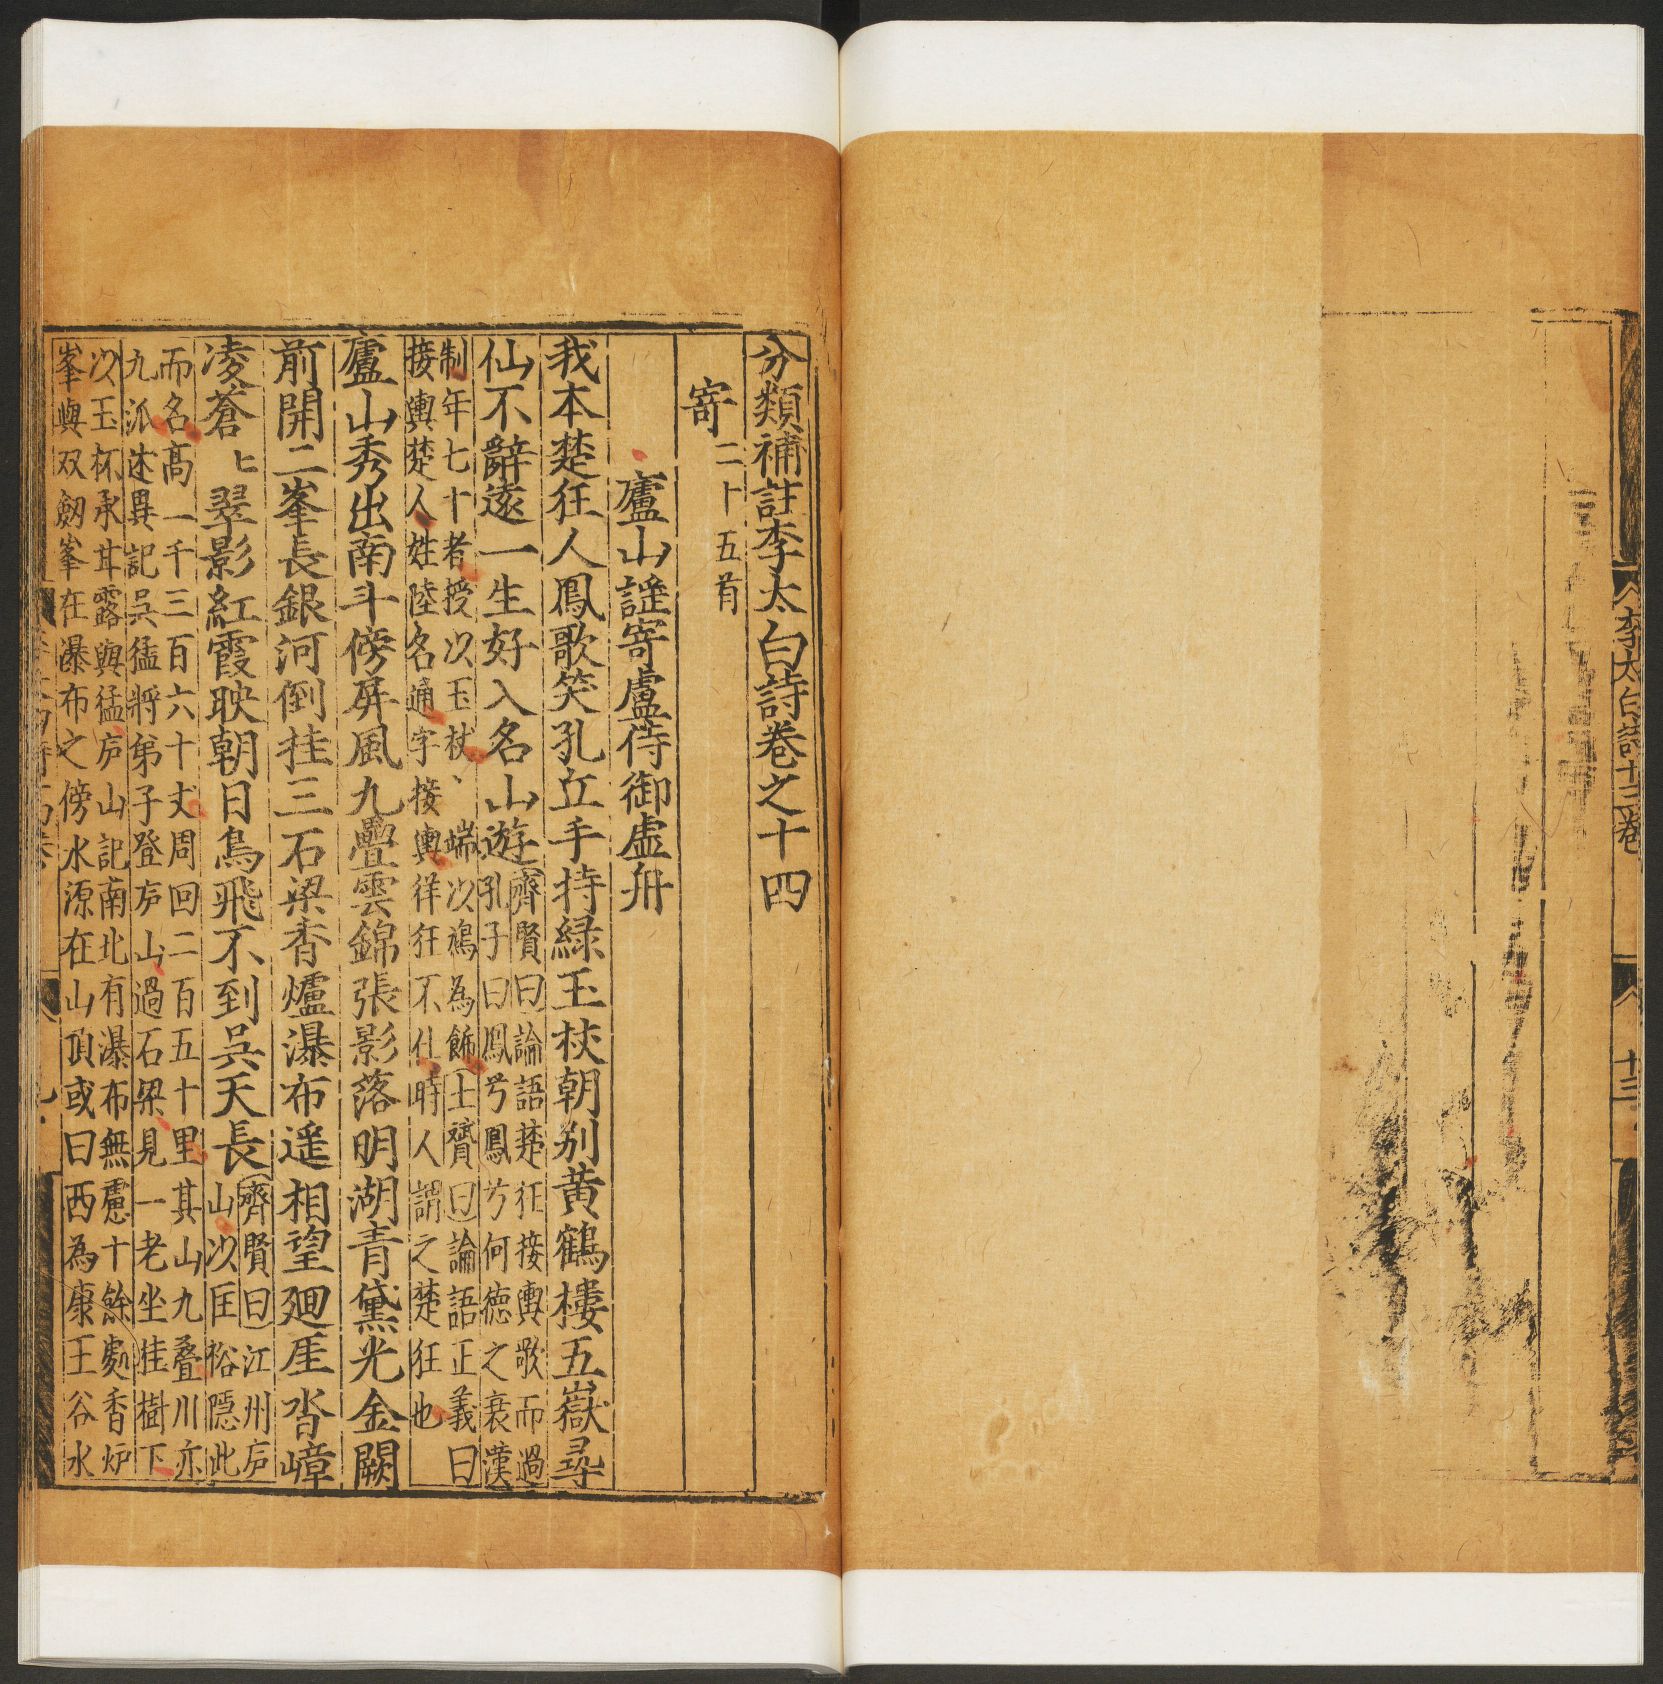 李太白詩十三卷
十三
分類補註李太白詩卷之十四
寄
二十五首
廬山謡寄盧侍御虚舟
我本楚狂人鳳歌笑孔丘手持緑玉杖朝别黄鶴樓五嶽尋
仙不辭遠一生好入名山遊
齊賢曰論語楚狂接輿歌而過
孔子曰鳳兮鳳兮何徳之衰漢
制年七十者授以玉杖、端以鳩為飾士贇曰論語正義曰
接輿楚人姓陸名通字接輿徉狂不仕時人謂之楚狂也
廬山秀出南斗傍屏風九疊雲錦張影落明湖青黛光金闕
前開二峯長銀河倒挂三石梁香爐瀑布遥相望廻厓沓嶂
凌蒼翠影紅霞映朝日鳥飛不到吳天長
齊賢曰江州庐
山以匡裕隠此
而名髙一千三百六十丈周回二百五十里其山九叠川亦
九派述異記呉猛將弟子登庐山過石梁見一老坐桂樹下
以玉杯承甘露與猛庐山記南北有瀑布無慮十餘處香炉
峯與双劔峯在瀑布之傍水源在山頂或曰西為康王谷水